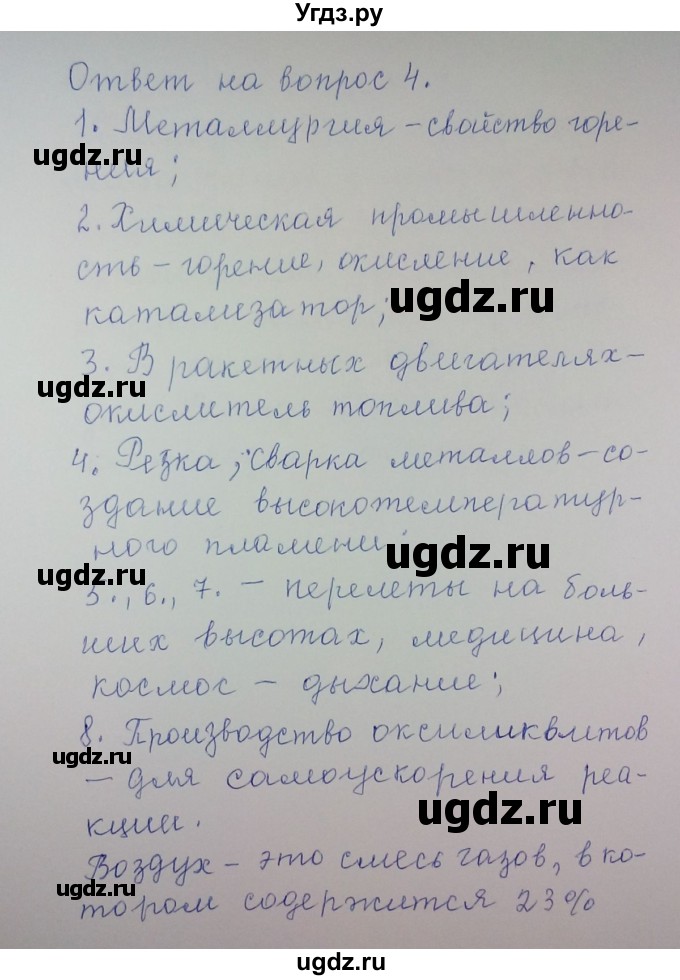 Угдз.ру
Ответ на вопрос 4.
1. Металлургия – свойство горе-
ния;
2. Химическая промышленно-
сть – горение, окисление, как
катализатор;
3. В ракетных двигателях –
окислитель топлива;
4. Резка, сварка металлов – со-
здание высокотемператур-
ного пламени;
5., 6., 7. – перелеты на боль-
ших высотах, медицина,
космос – дыхание;
8. Производство оксиликвитов
– для самоускорения реа-
кции.
Воздух – это смесь газов, в ко-
тором содержится 23%
ugdz.ru
ugdz.ru
ugdz.ru
ugdz.ru
ugdz.ru
ugdz.ru
ugdz.ru
ugdz.ru
ugdz.ru